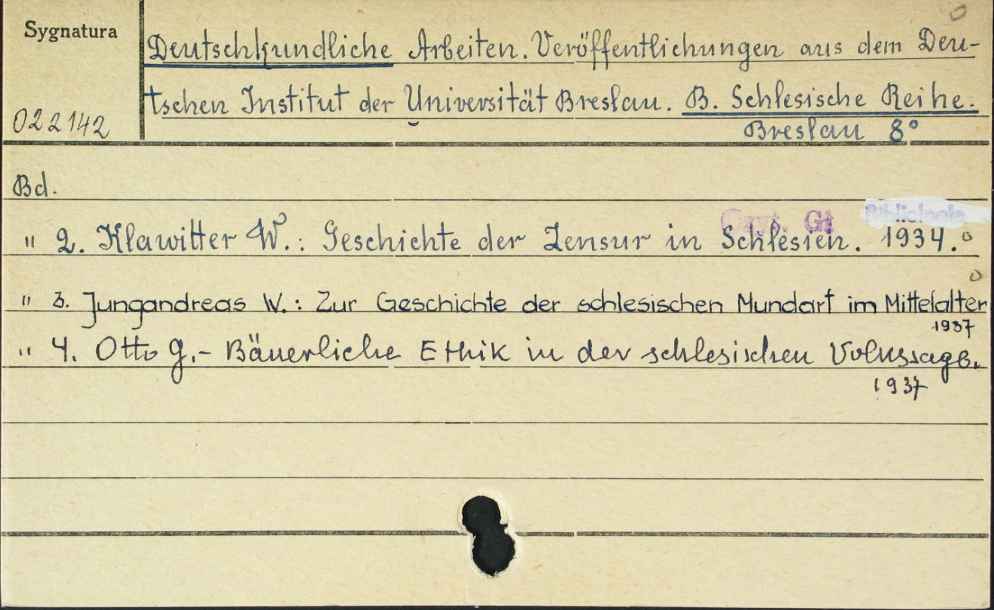 Sygnatura
022142
Deutschkundliche Arbeiten. Veröffentlichungen aus dem Deu-
tschen Institut der Universität Breslau. B. Schlesische Reihe.
Breslau 8°
Bd.
Czyt. Gł.
" 2. Klawitter W.: Geschichte der Zensur in Schlesien. 1934.
" 3. Jungandreas W.: Zur Geschichte der schlesischen Mundart im Mittelalter
1937
" 4. Otto G.- Bäuerliche Ethik in der schlesischen Volkssage.
1937